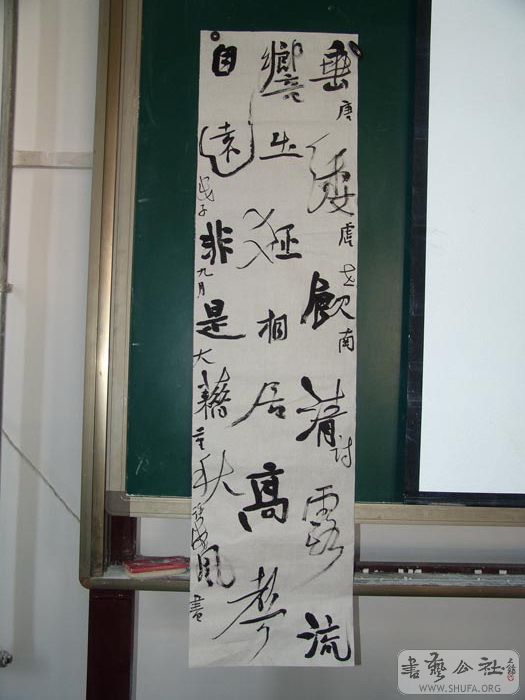 垂緌飲清露流
響出疏桐居高聲
自遠非是藉秋風
唐虞世南詩
戊子九月大
書
書藝公社
WWW.SHUFA.ORG